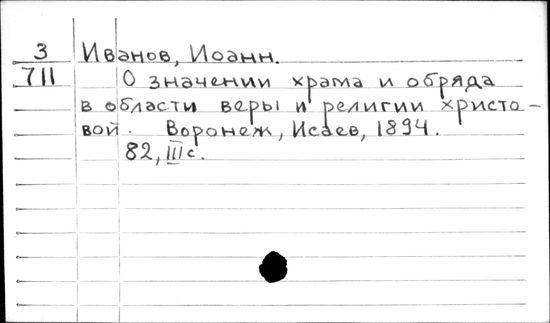 3 Иванов, Иоанн.
711 О значении храма и обряда
в области веры и религии христо-
вой. Воронеж, Исаев, 1894.
82, III с.